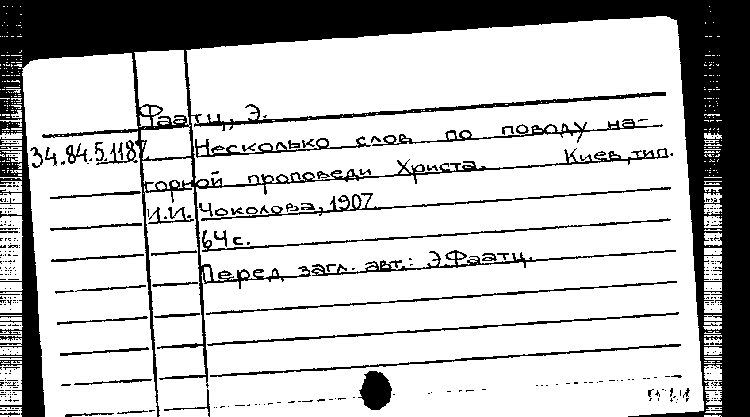 Фаатц, Э.
34.84.5.1187 Несколько слов по поводу на-
горной проповеди Христа. Киев, тип.
И.И. Чоколова, 1907
64 с.
Перед загл. авт.: Э.Фаатц.